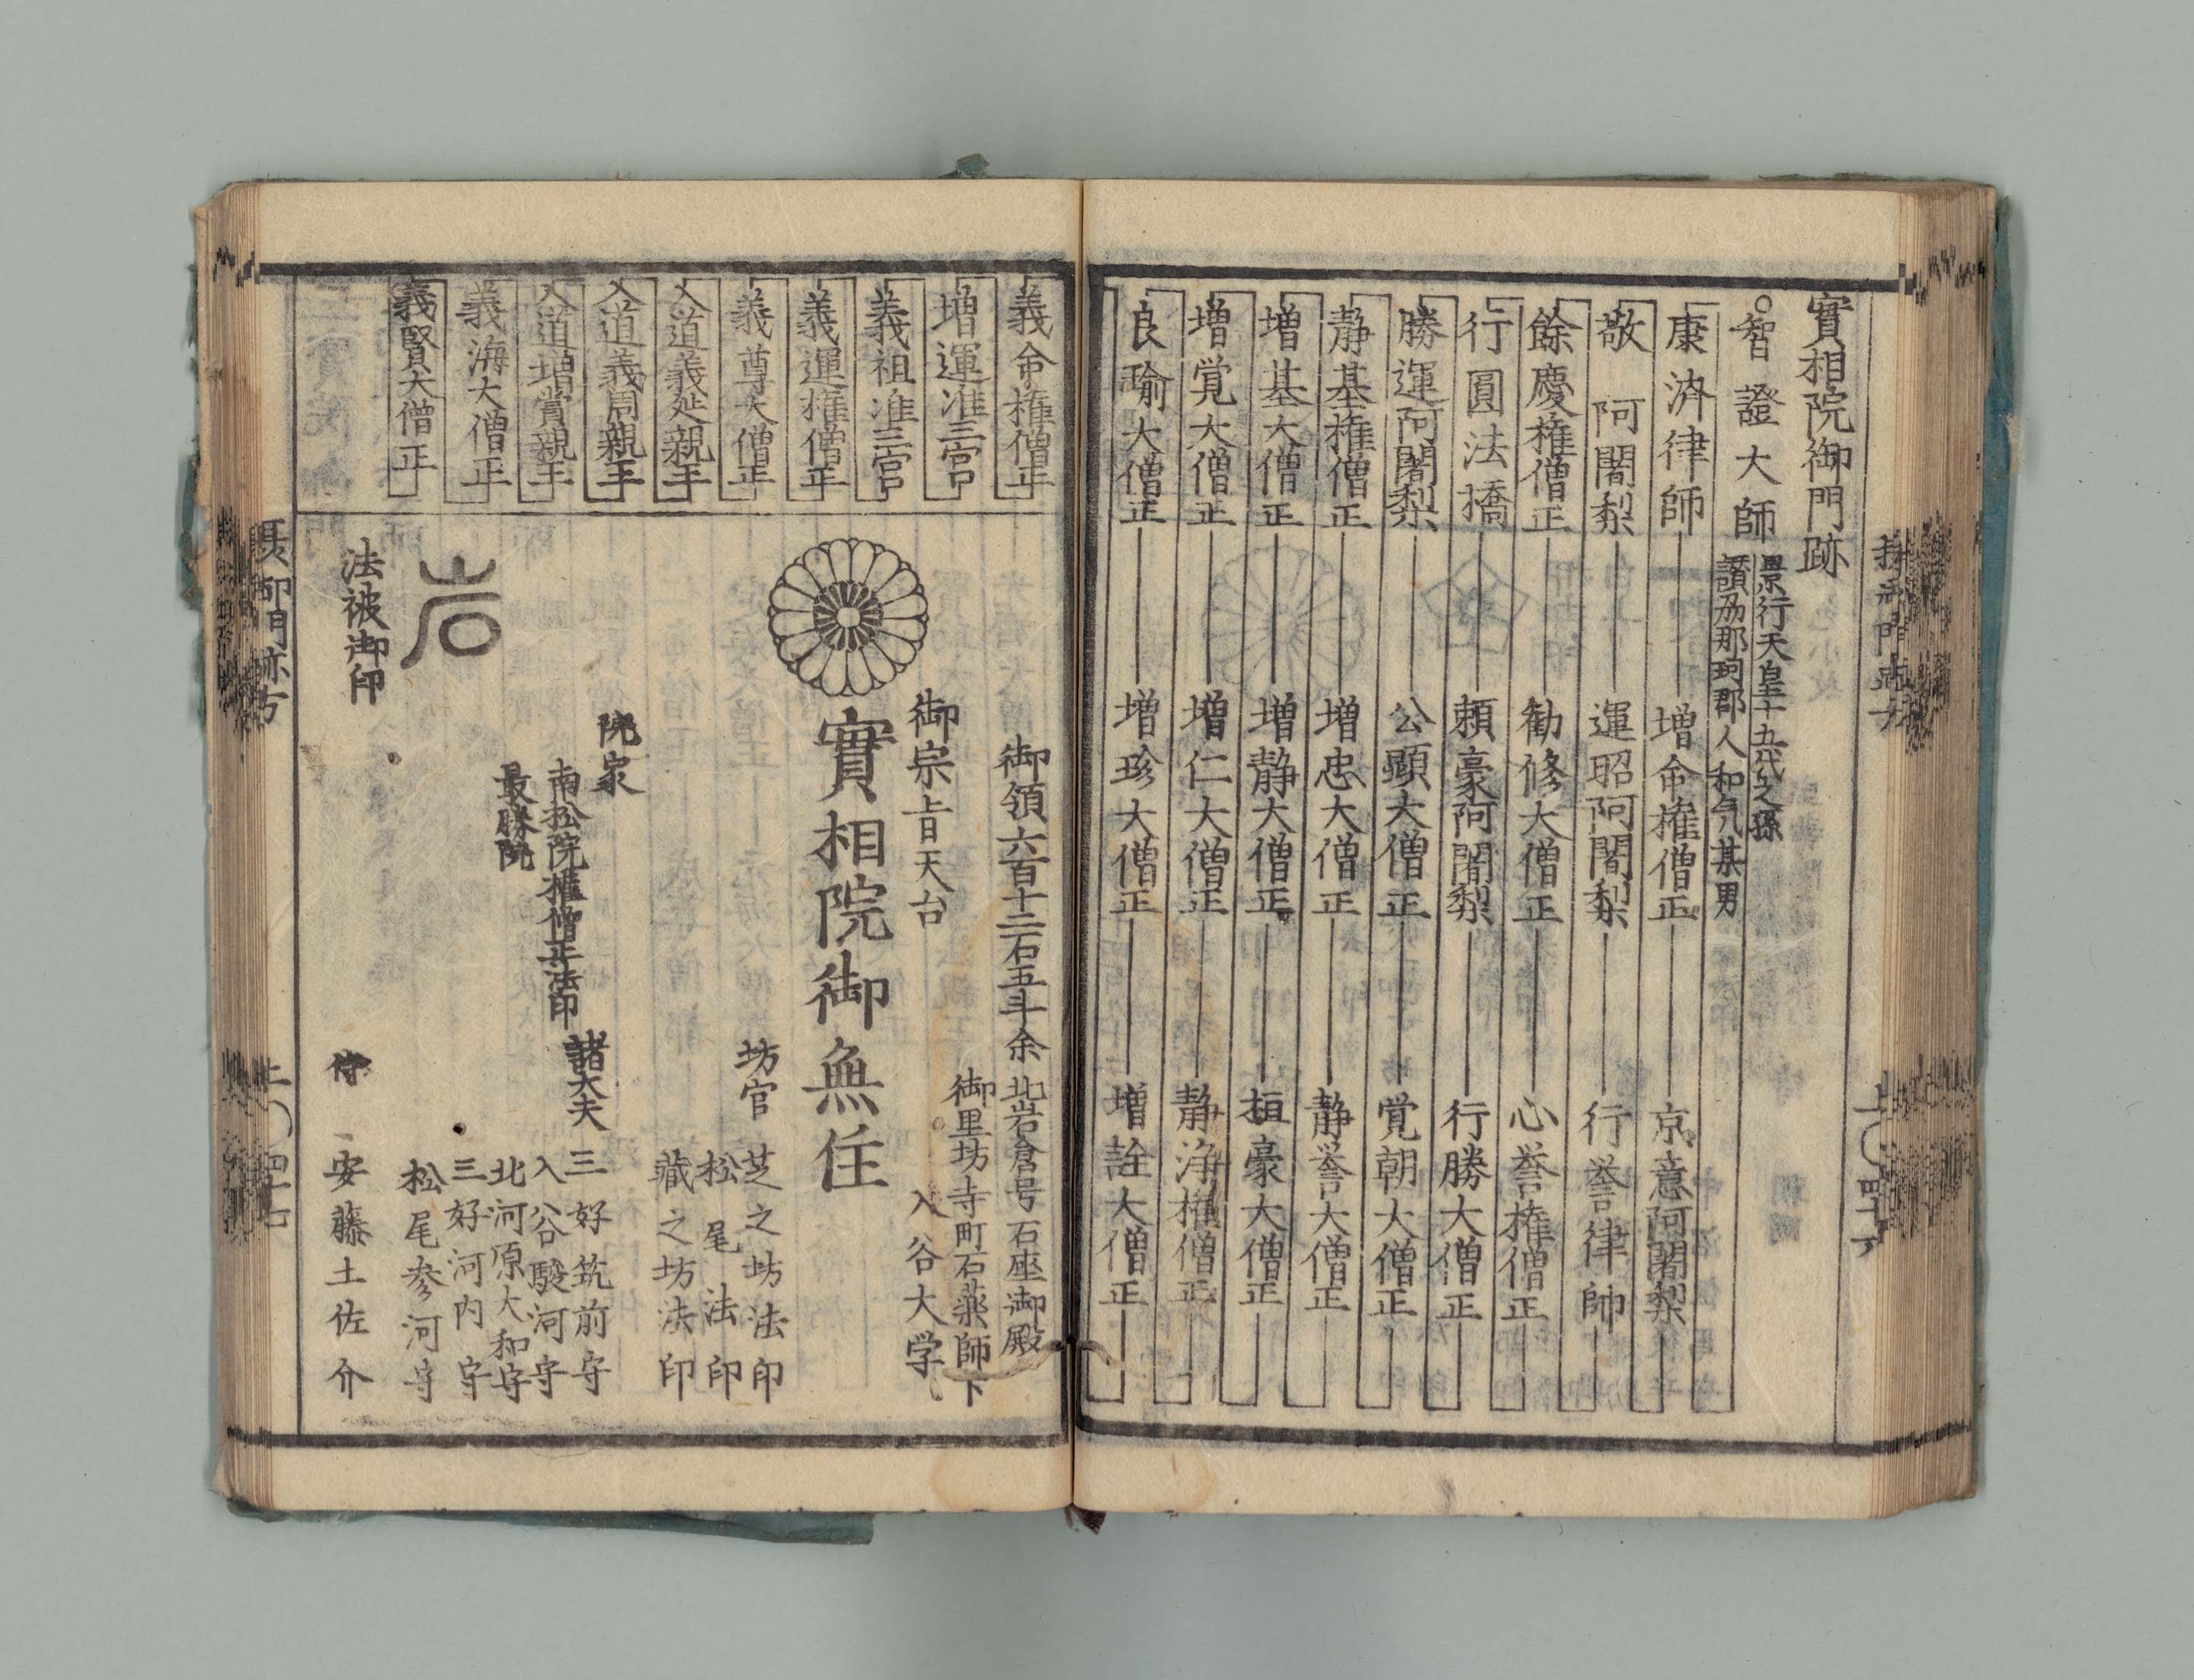 實相院御門跡
○智證大師
景行天皇十九代之孫
讃刕那珂郡人和気某男
康済律師 増命権僧正 京意阿闍梨
敬 阿闍梨 運昭阿闍梨 行誉律師
餘慶権僧正 勧修大僧正 心誉権僧正
行圓法橋 頼豪阿闍梨 行勝大僧正
勝運阿闍梨 公顕大僧正 覚朝大僧正
静基権僧正 増忠大僧正 静誉大僧正
増基大僧正 増静大僧正 桓豪大僧正
増覚大僧正 増仁大僧正 静浄権僧正
良瑜大僧正 増珍大僧正 増詮大僧正
義命権僧正
増運准三宮
義祖准三宮
義運権僧正
義尊大僧正
入道義延親王
入道義周親王
入道増賞親王
義海大僧正
義賢大僧正
御領六百十二石五斗余 北岩倉号石座御殿
御里坊寺町石薬師下
御宗旨天台 入谷大学
實相院御無住
坊官 芝之坊法印
松尾法印
蔵之坊法印
院家
南松院権僧正法印
最勝院
諸大夫 三好筑前守
入谷駿河守
北河原大和守
三好河内守
松尾参河守
侍 安藤土佐介
岩
法被御印
御門跡方